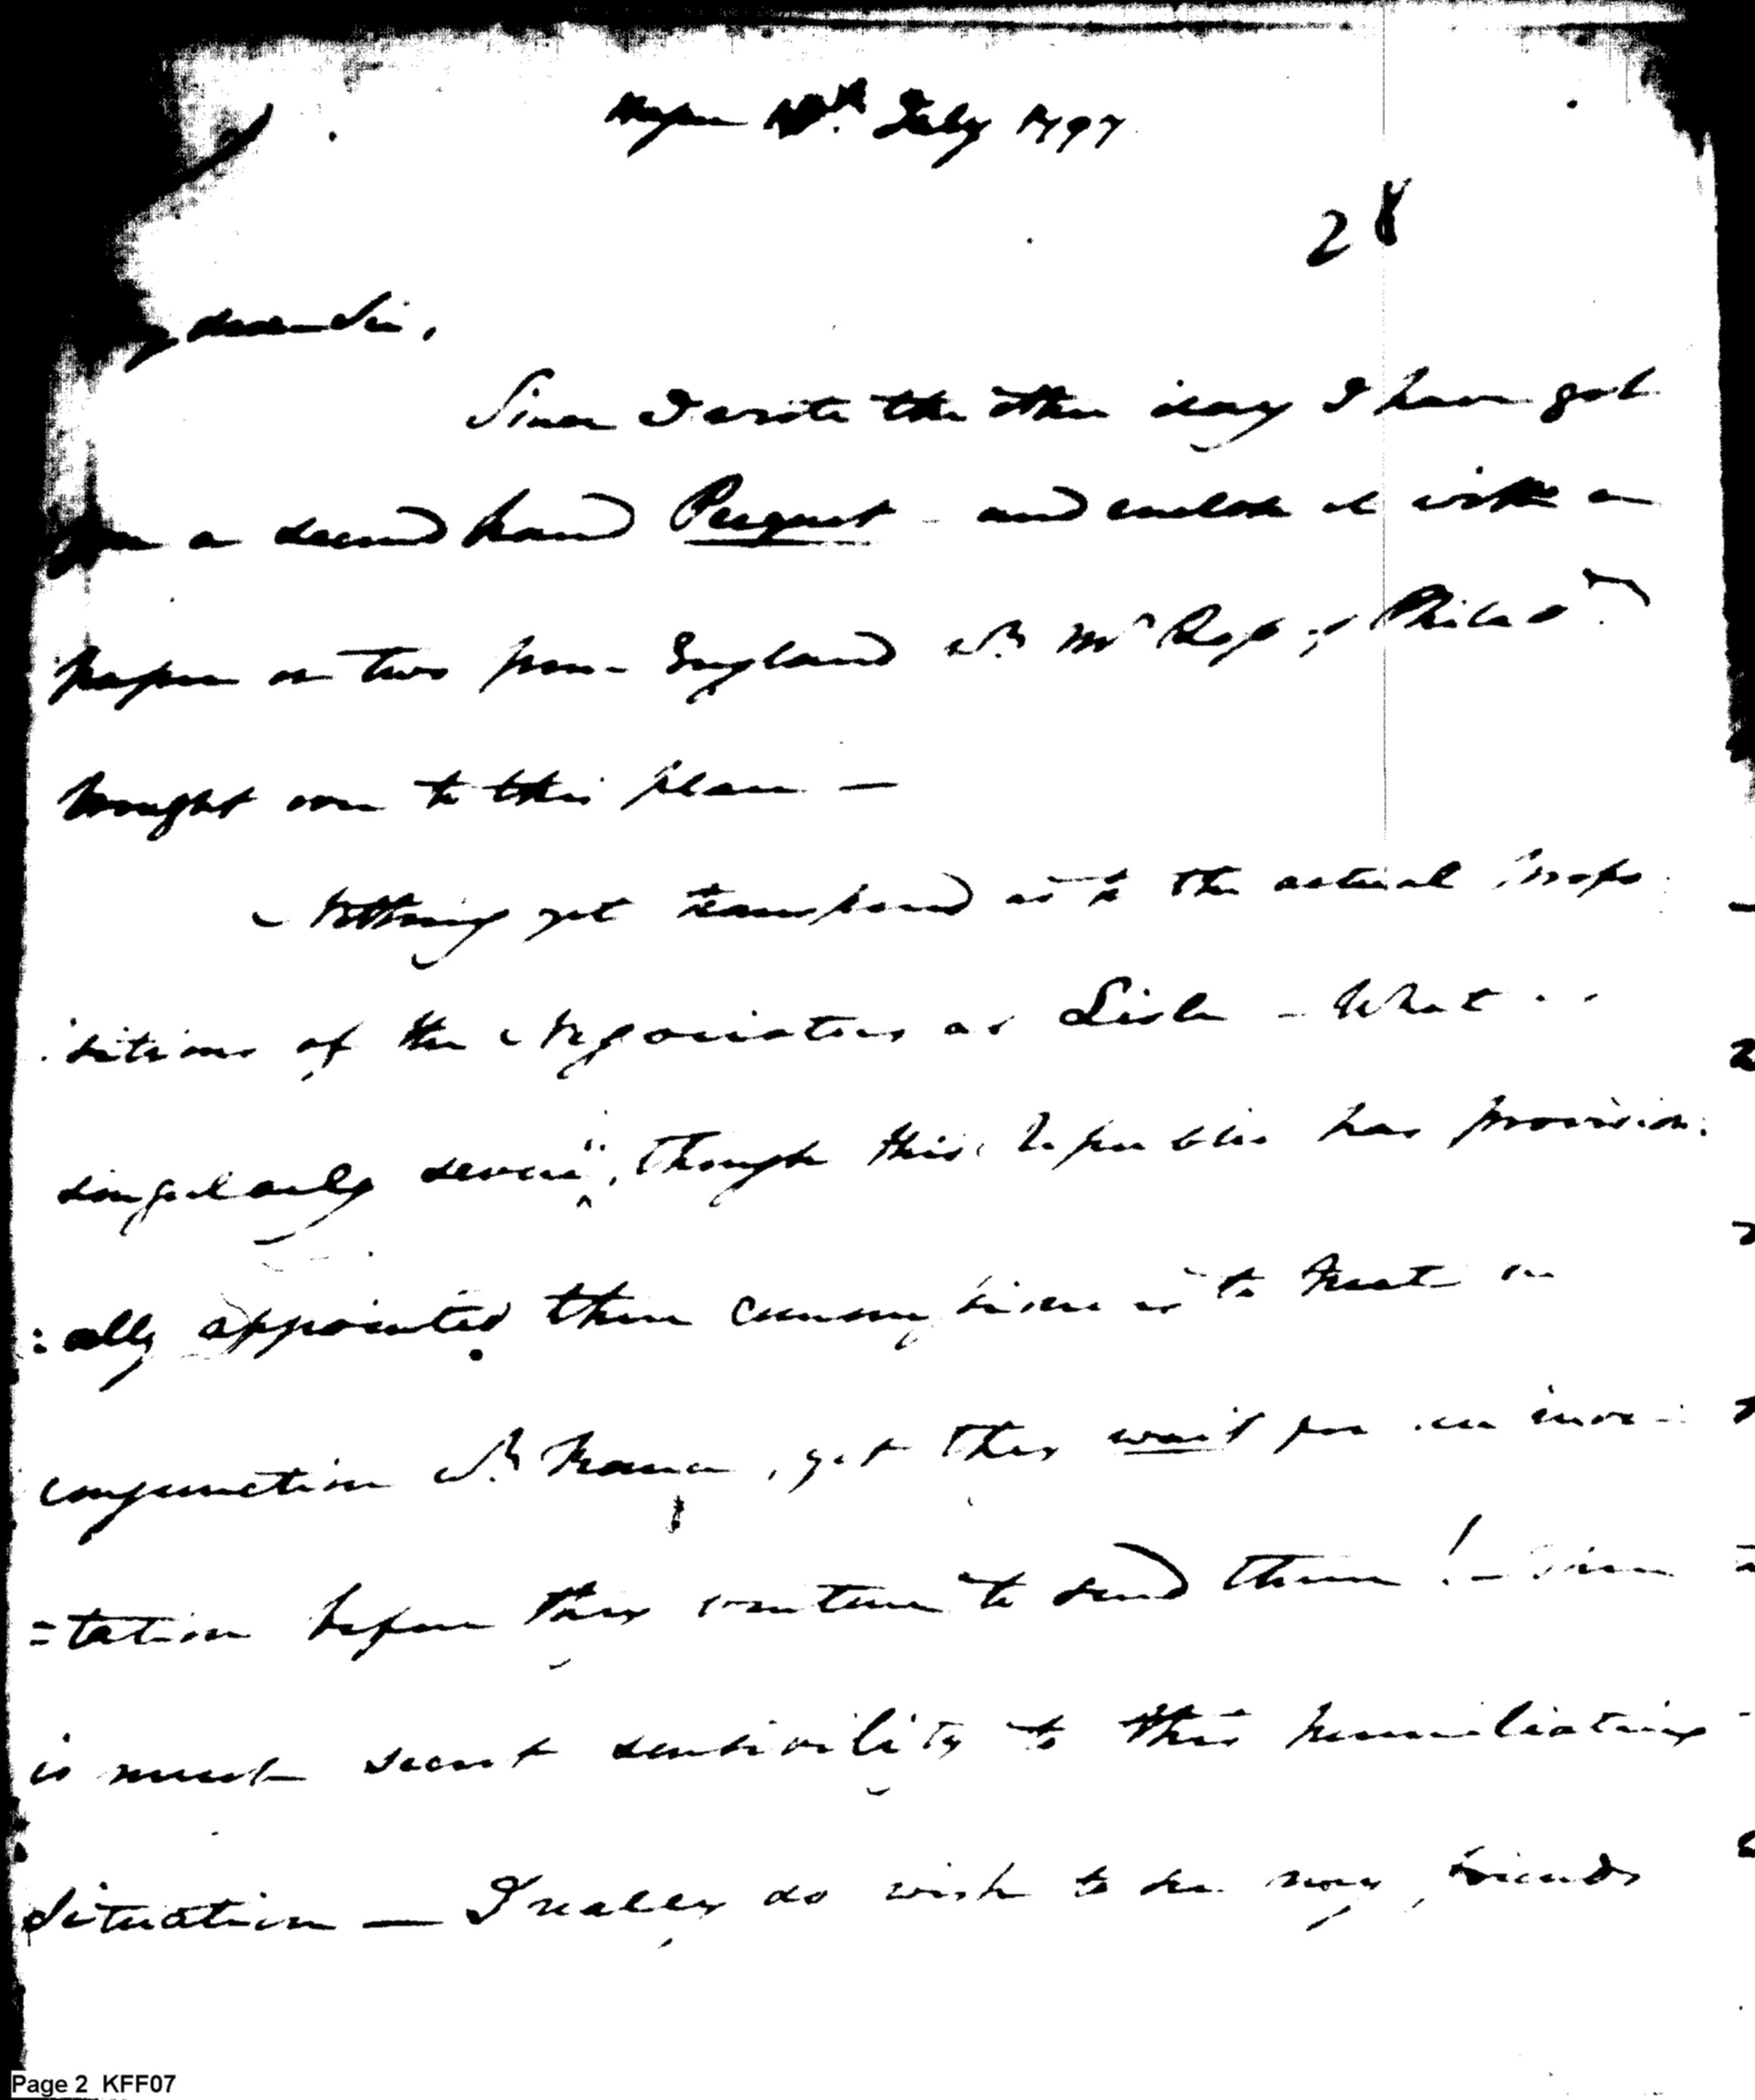 July 1797
28
dear Sir,
Since I wrote the other day I have got
you a second hand Peignet - and enclose it with a
paper or two from England wh Mr Ross of Philad.
brought over to this place —
Nothing yet transpired as to the actual propo
:sitions of the Negociators at Lisle - What is
singularly severe, though this Republic has provision:
:ally appointed their commissioners to treat in
conjunction wh France, yet they wait for an invi
=tation before they venture to send them! - There
is much secret sensibility to this humiliating
Situation — I really do wish to see my friends
Page 2 KFF07